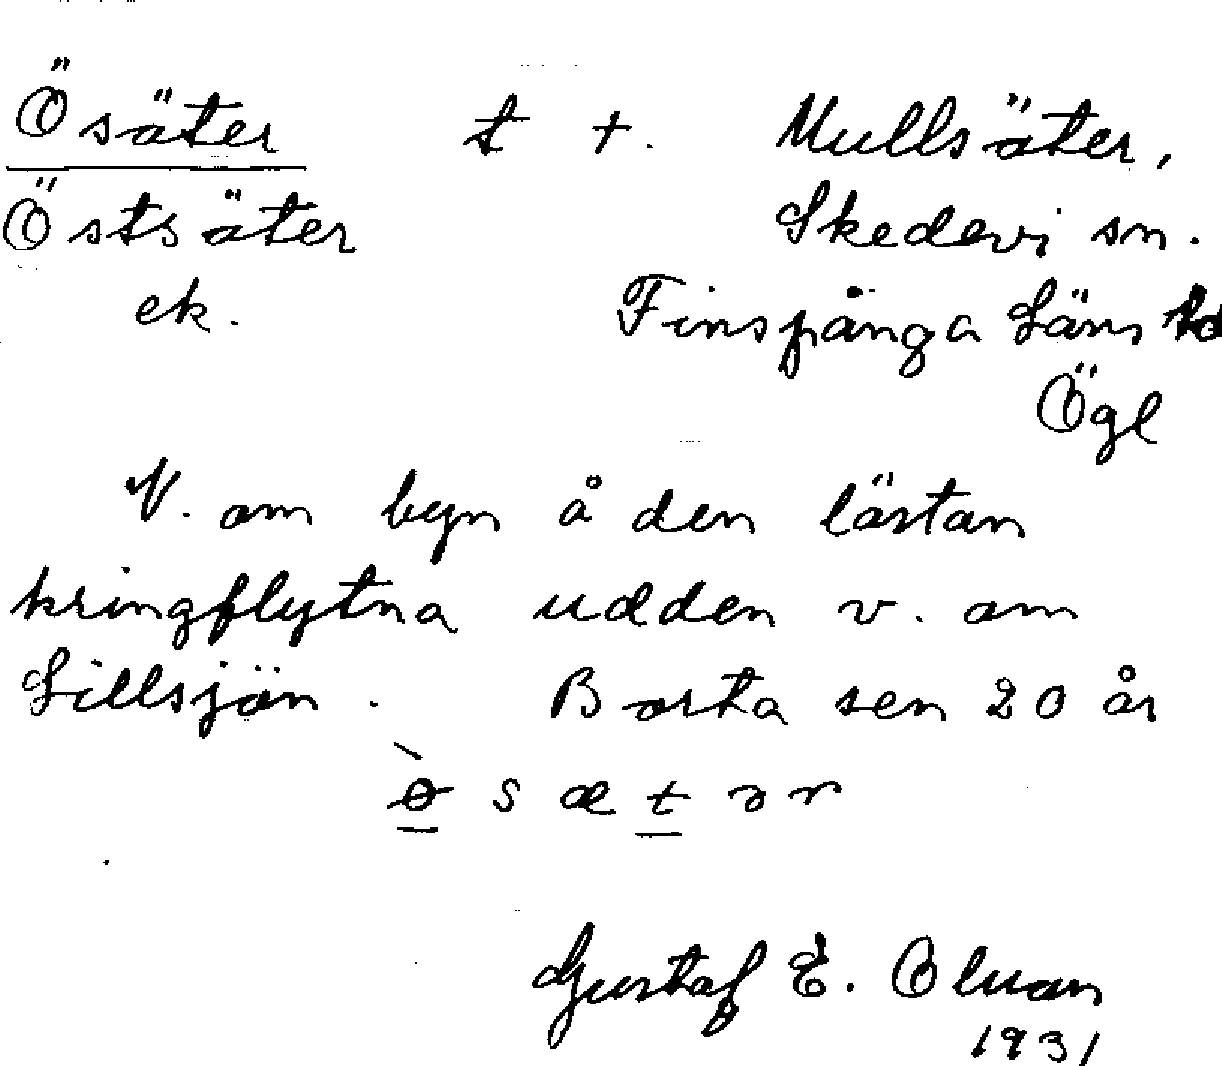 Ösäter t +. Mullsäter,
Östsäter Skedevi sn.
ek. Finspånga Läns hd
Ögl
V. om byn å den lästan
kringflytna udden v. om
Lillsjön. Borta sen 20 år
ø̀ s æ t ə r
Gustaf E. Oluan
1931